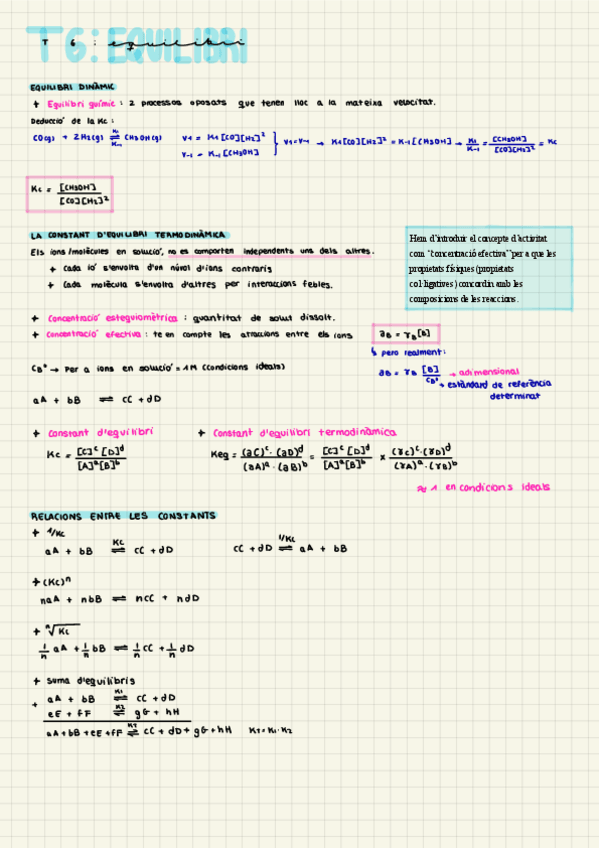 T6: EQUILIBRI
T 6 : equilibri
EQUILIBRI DINÀMIC
+ Equilibri químic : 2 processos oposats que tenen lloc a la mateixa velocitat.
Deducció de la Kc :
CO(g) + 2H2(g) ⇌ CH3OH(g)
K1
K-1
V1 = K1[CO][H2]²
V-1 = K-1[CH3OH]
V1=V-1 → K1[CO][H2]² = K-1[CH3OH] → K1/K-1 = [CH3OH]/[CO][H2]² = Kc
Kc = [CH3OH]/[CO][H2]²
LA CONSTANT D'EQUILIBRI TERMODINÀMICA
Els ions/molècules en solució, no es comporten independents uns dels altres.
+ Cada ió s'envolta d'un núvol d'ions contraris
+ Cada molècula s'envolta d'altres per interaccions febles.
Hem d'introduir el concepte d'activitat
com "concentració efectiva" per a que les
propietats físiques (propietats
col·ligatives) concordin amb les
composicions de les reaccions.
+ Concentració estequiomètrica : quantitat de solut dissolt.
+ Concentració efectiva : te en compte les atraccions entre els ions
aB = γB[B]
↳ pero realment:
aB = γB [B]/CB° → adimensional
→ estàndard de referència
determinat
CB° → Per a ions en solució = 1M (condicions ideals)
aA + bB ⇌ cC + dD
+ Constant d'equilibri
Kc = [C]ᶜ[D]ᵈ/[A]ᵃ[B]ᵇ
+ Constant d'equilibri termodinàmica
Keq = (aC)ᶜ·(aD)ᵈ/(aA)ᵃ·(aB)ᵇ = [C]ᶜ[D]ᵈ/[A]ᵃ[B]ᵇ × (γC)ᶜ·(γD)ᵈ/(γA)ᵃ·(γB)ᵇ
≈ 1 en condicions ideals
RELACIONS ENTRE LES CONSTANTS
+ 1/Kc
Kc
aA + bB ⇌ cC + dD
1/Kc
cC + dD ⇌ aA + bB
+ (Kc)ⁿ
naA + nbB ⇌ ncC + ndD
+ ⁿ√Kc
1/n aA + 1/n bB ⇌ 1/n cC + 1/n dD
+ Suma d'equilibris
K1
aA + bB ⇌ cC + dD
+
K2
eE + fF ⇌ gG + hH
KT
aA + bB + eE + fF ⇌ cC + dD + gG + hH KT = K1·K2